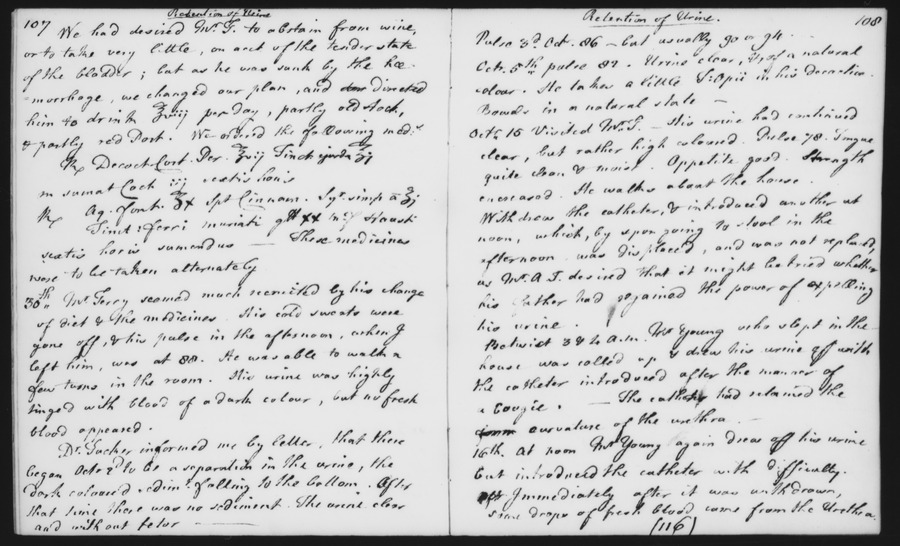 107 Retention of Urine
We had desired Mr. T. to abstain from wine,
or to take very little, on acct of the tender state
of the bladder; but as he was sunk by the hæ-
morrhage, we changed our plan, and directed
him to drink ℥viij per day, partly old Hock,
& partly red Port. We ordered the following med:
℞ Decoct Cort. Per. ℥vij Tinct ejusdem ℥j
m sumat Coch iij sextis horis
℞ Aq. font. ℥x Spt Cinnam. Syr. simp a ℥j
Tinct. Ferri muriati gtt xx m Haust:
sextis horis sumendus — These medicines
were to be taken alternately
30th Mr. Terry seemed much recruited by his change
of diet & the medicines. His cold sweats were
gone off, & his pulse in the afternoon, when I
left him, was at 88. He was able to walk a
few turns in the room. His urine was highly
tinged with blood of a dark colour, but no fresh
blood appeared.
Dr. informed me by letter, that there
began Octr 2d to be a separation in the urine, the
dark coloured sedimt. falling to the bottom. After
that time there was no sediment. The urine clear
and without fetor —
Retention of Urine. 108
Pulse 3d Oct. 86 — but usually 90 or 94.
Octr. 5th pulse 82. Urine clear, & of a natural
colour. He takes a little T. Opii in his decoction.
Bowels in a natural state —
Octr. 15 Visited Mr. T. — His urine had continued
clear, but rather high coloured. Pulse 78. Tongue
quite clean & moist. Appetite good. Strength
encreased. He walks about the house.
Withdrew the catheter, & introduced another at
noon, which, by upon going to stool in the
afternoon was displaced, and was not replaced,
as Mr. A. T. desired that it might be tried whether
his father had regained the power of expelling
his urine.
Betwixt 3 & 4 a.m. Mr Young who slept in the
house was called up & drew his urine off with
the catheter introduced after the manner of
a bougie. — The catheter had retained the
curvature of the urethra. —
16th. At noon Mr Young again drew off his urine
but introduced the catheter with difficulty.
Immediately after it was withdrawn,
some drops of fresh blood came from the Urethra.
(116)